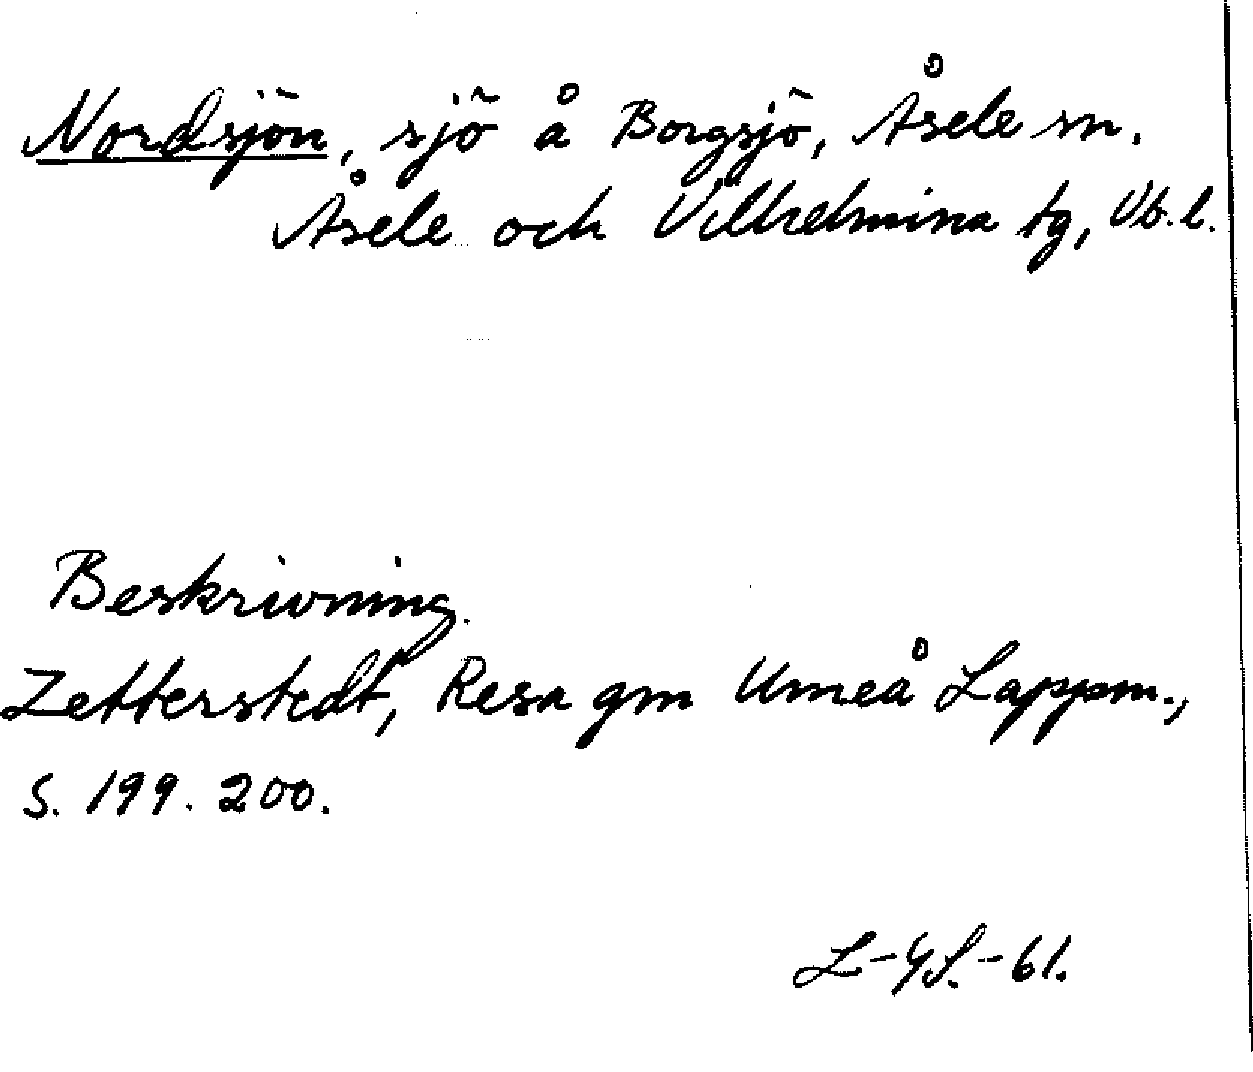 Nordsjön, sjö å Borgsjö, Åsele sn.
Åsele och Vilhelmina tg, Vb. l.
Beskrivning.
Zetterstedt, Resa gm Umeå Lappm.,
S. 199. 200.
L-YS.-61.